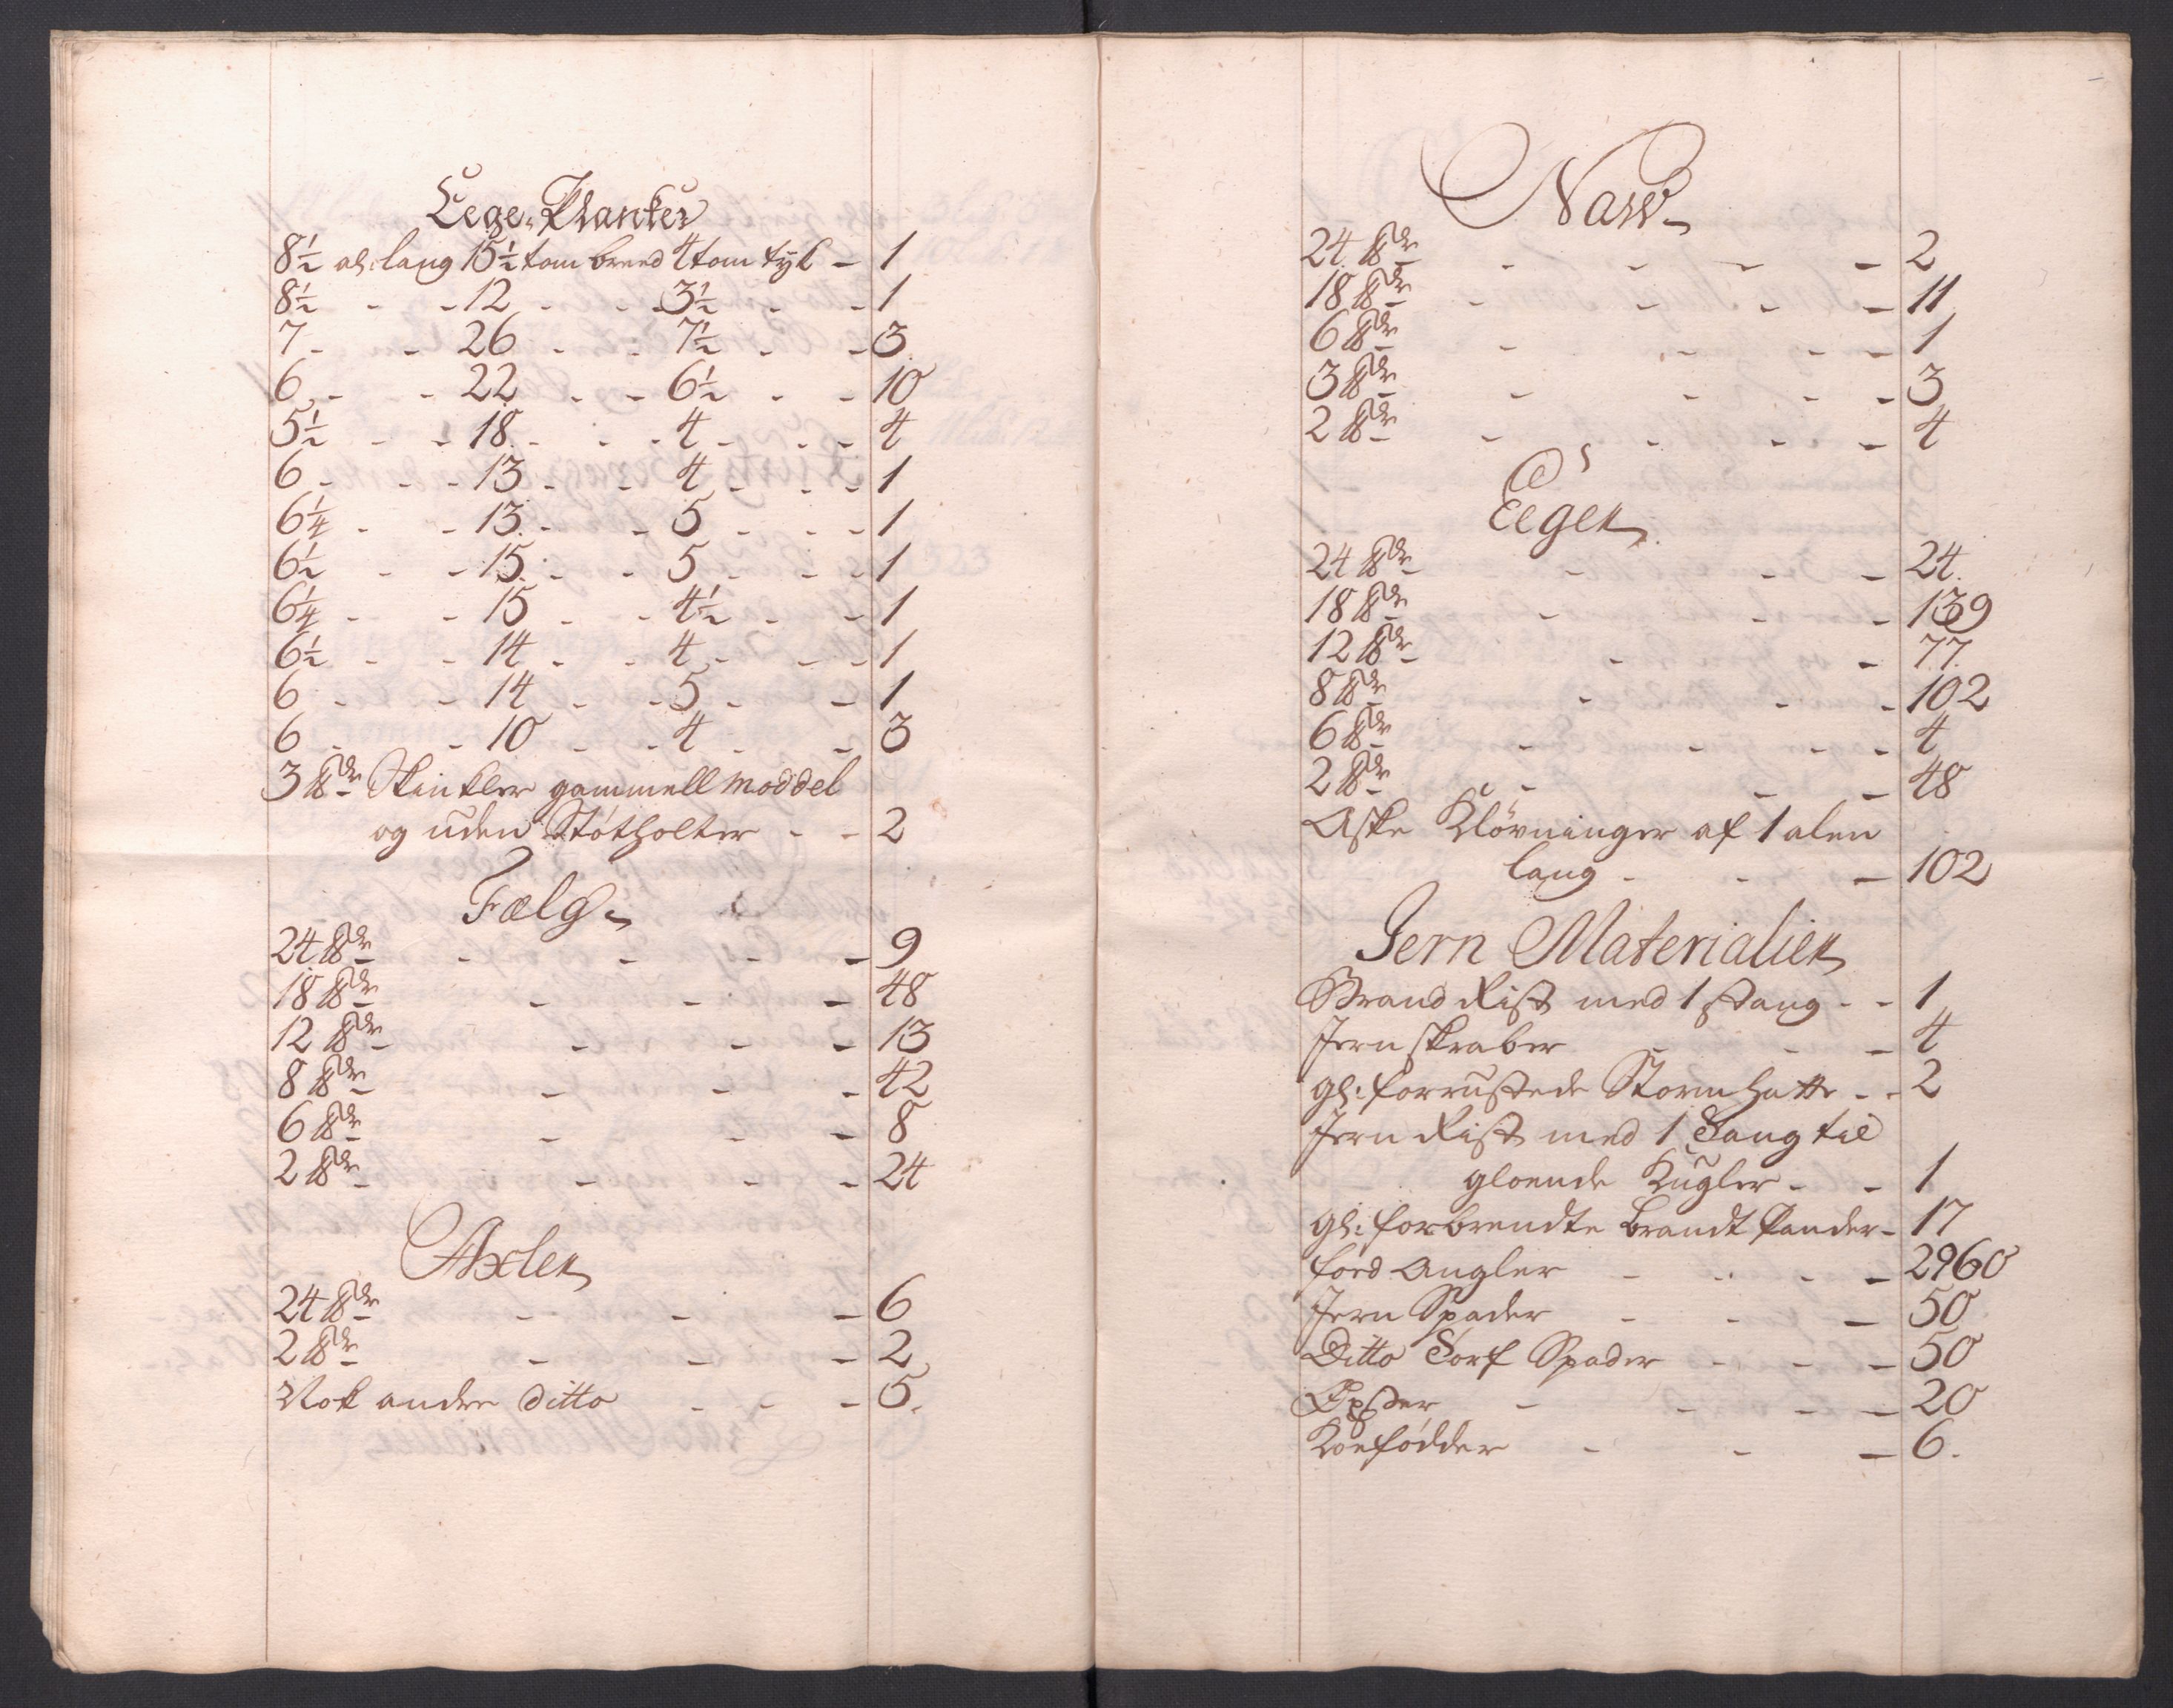 Eege Plancker
8½ al: lang 15½ tom breed 4 tom tyk - 1
8½ - - 12 - - 3½ - - 1
7 - - 26 - - 7½ - - 3
6 - - 22 - - 6½ - - 10
5½ - - 18 - - 4 - - 4
6 - - 13 - - 4 - - 1
6¼ - - 13 - - 5 - - 1
6½ - - 15 - - 5 - - 1
6¼ - - 15 - - 4½ - - 1
6½ - - 14 - - 4 - - 1
6 - - 14 - - 5 - - 1
6 - - 10 - - 4 - - 3
3 ℔dr Skinkler gammell moddel
og uden Stötholter - - 2
Fælg
24 ℔dr - - - - 9
18 ℔dr - - - 48
12 ℔dr - - - 13
8 ℔dr - - - 42
6 ℔dr - - - 8
2 ℔dr - - - 24
Axlen
24 ℔dr - - - 6
2 ℔dr - - - 2
Nok andre ditto - - - 5.
Naw
24 ℔dr - - - - 2
18 ℔dr - - - - 11
6 ℔dr - - - - 1
3 ℔dr - - - - 3
2 ℔dr - - - - 4
Eegen
24 ℔dr - - - 24
18 ℔dr - - - 139
12 ℔dr - - 77
8 ℔dr - - - 102
6 ℔dr - - - - 4
2 ℔dr - - - 48
Aske Klövninger af 1 alen
lang - - - 102
Jern Materialier
Brand Rist med 1 stang - - 1
Jern skraber - - - 4
gl: forrustede Storm hatte - - 2
Jern Rist med 1 Tang til
gloende Kugler - - 1
gl: forbrendte brandt Pander - 17
ford Angler - - - - 2960
Jern Spader - - - 50
Ditto Torf Spader - - - 50
Öxser - - - - 20
Koefödder - - - 6.